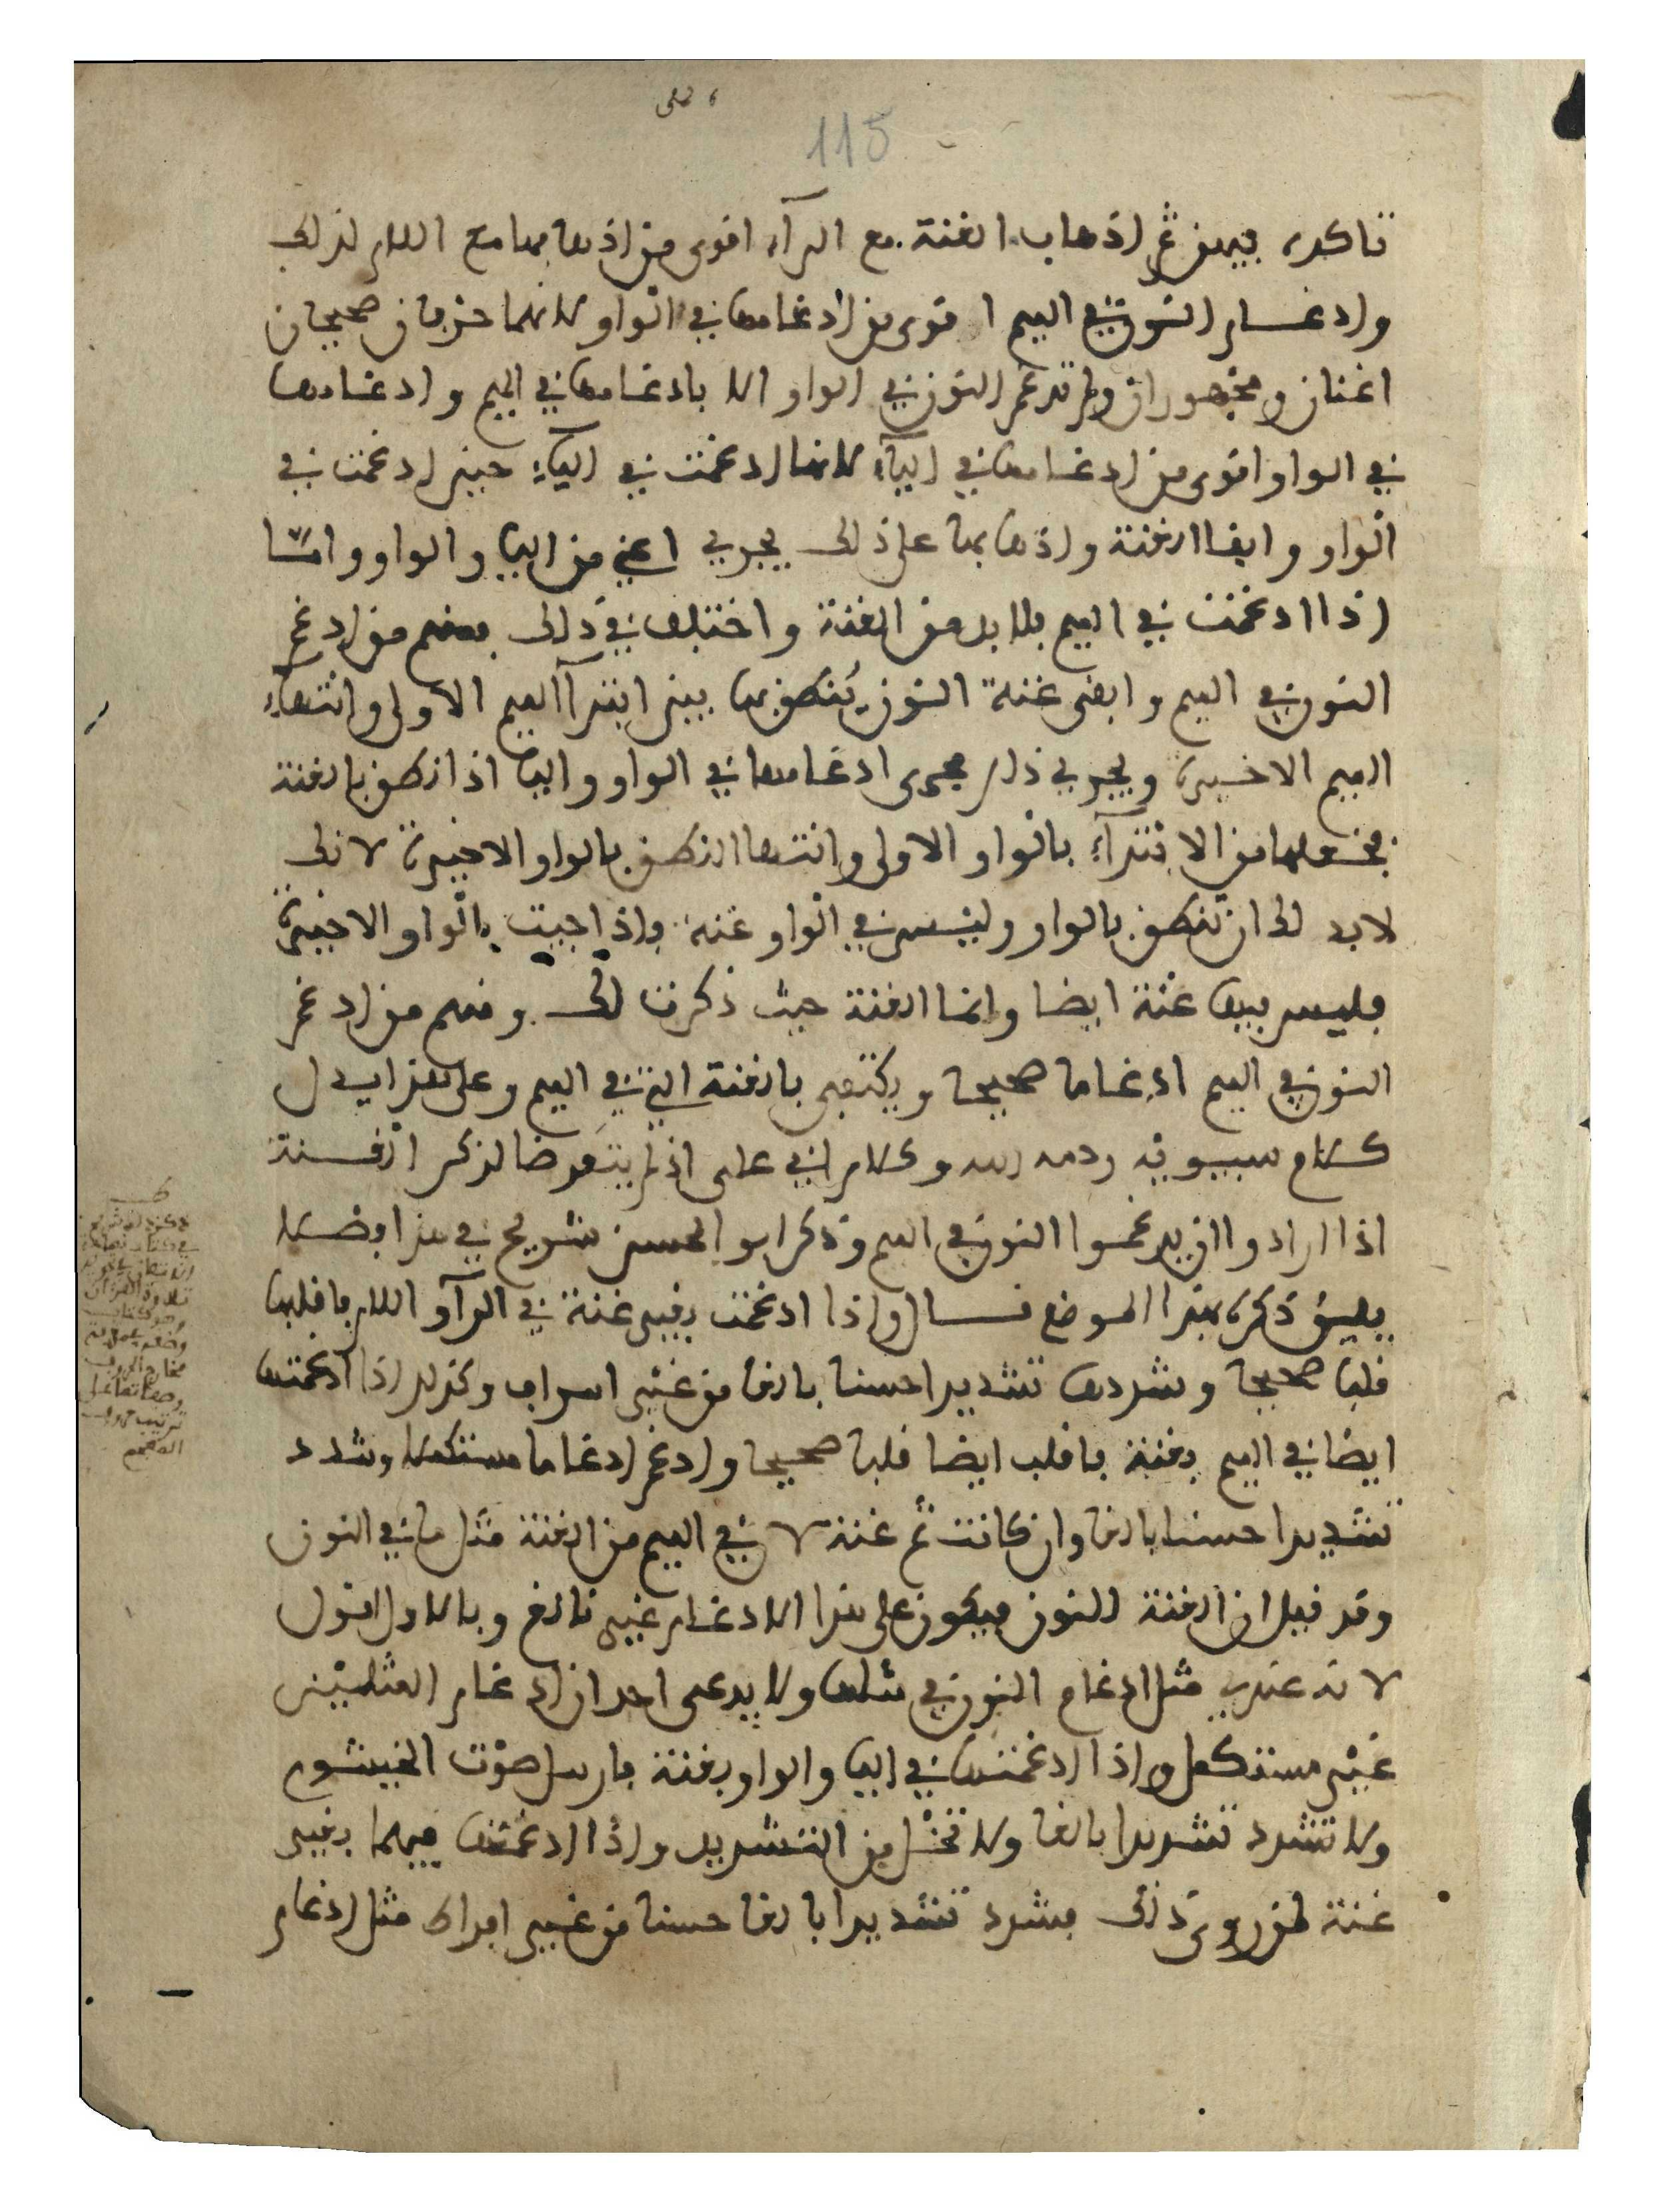 115
تاكده فيمن ثم اذهاب الغنة مع الرآء اقوى من اذهابها مع اللام لذلك
وادغام النون في الميم اقوى من ادغامها في الواو لانهما حرفان صحيحان
اغنان ومجهوران ولم تدغم النون في الواو الا بادغامها في الميم وادغامها
في الواو اقوى من ادغامها في اليآء لانها ادغمت في اليآء حين ادغمت في
الواو وابقا الغنة واذهابها على ذلك يجري اعني من اليا والواو واما
اذا ادغمت في الميم فلا بد من الغنة واختلف في ذلك فمنهم من ادغم
النون في الميم وابقى غنة النون ينطق بها بين ابتدآ الميم الاولى وانتهآء
الميم الاخيرة ويجري ذلك مجرى ادغامها في الواو واليا اذا نطق بالغنة
فجعلها من الابتدآء بالواو الاولى وانتها النطق بالواو الاخيرة لانك
لابد لك ان تنطق بالواو وليس في الواو غنة فاذا جيت بالواو الاخيرة
فليس فيها غنة ايضا وانما الغنة حيث ذكرت لك ومنهم من ادغم
النون في الميم ادغاما صحيحا ويكتفي بالغنة التي في الميم وعلى هذا يدل
كلام سيبويه رحمه الله وكلام ابي علي اذ لم يتعرضا لذكر الغنة
اذا ارادوا ان يدغموا النون في الميم وذكر ابو الحسن شريح في هذا فصلا
يليق ذكره بهذا الموضع قال واذا ادغمت بغير غنة في الرآ واللام فاقلبها
قلبا صحيحا وشددها تشديدا حسنا بالغا من غير اسراف وكذلك اذا ادغمتها
ايضا في الميم بغنة فاقلب ايضا قلبا صحيحا وادغم ادغاما مستكملا وشدد
تشديدا حسنا بالغا وان كانت ثم غنة لان في الميم من الغنة مثل ما في النون
وقد قيل ان الغنة للنون فيكون على هذا الادغام غير تام وبالاول اقول
لانه عندي مثل ادغام النون في مثلها ولا يدعي احد ان ادغام المثلين
غير مستكمل واذا ادغمتها في اليا والواو بغنة فارسل صوت الخيشوم
ولا تشدد تشديدا بالغا ولا تخل من التشديد واذا ادغمتها فيهما بغير
غنة لمن روى ذلك فشدد تشديدا بالغا حسنا من غير افراط مثل ادغام
في كتاب نهاية
تلاوة القران
مخارج الحروف
ترتيب حروف
المعجم